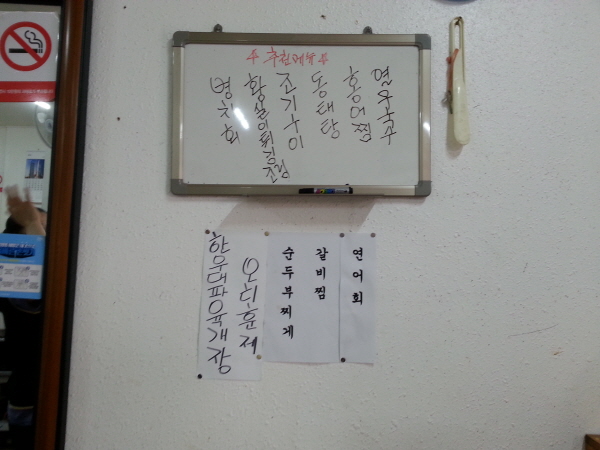 추천메뉴
병치회
황실이튀김조림
조기구이
동태탕
홍어찜
열무국수
한우대파육개장
오리훈제
순두부찌게
갈비찜
연어회